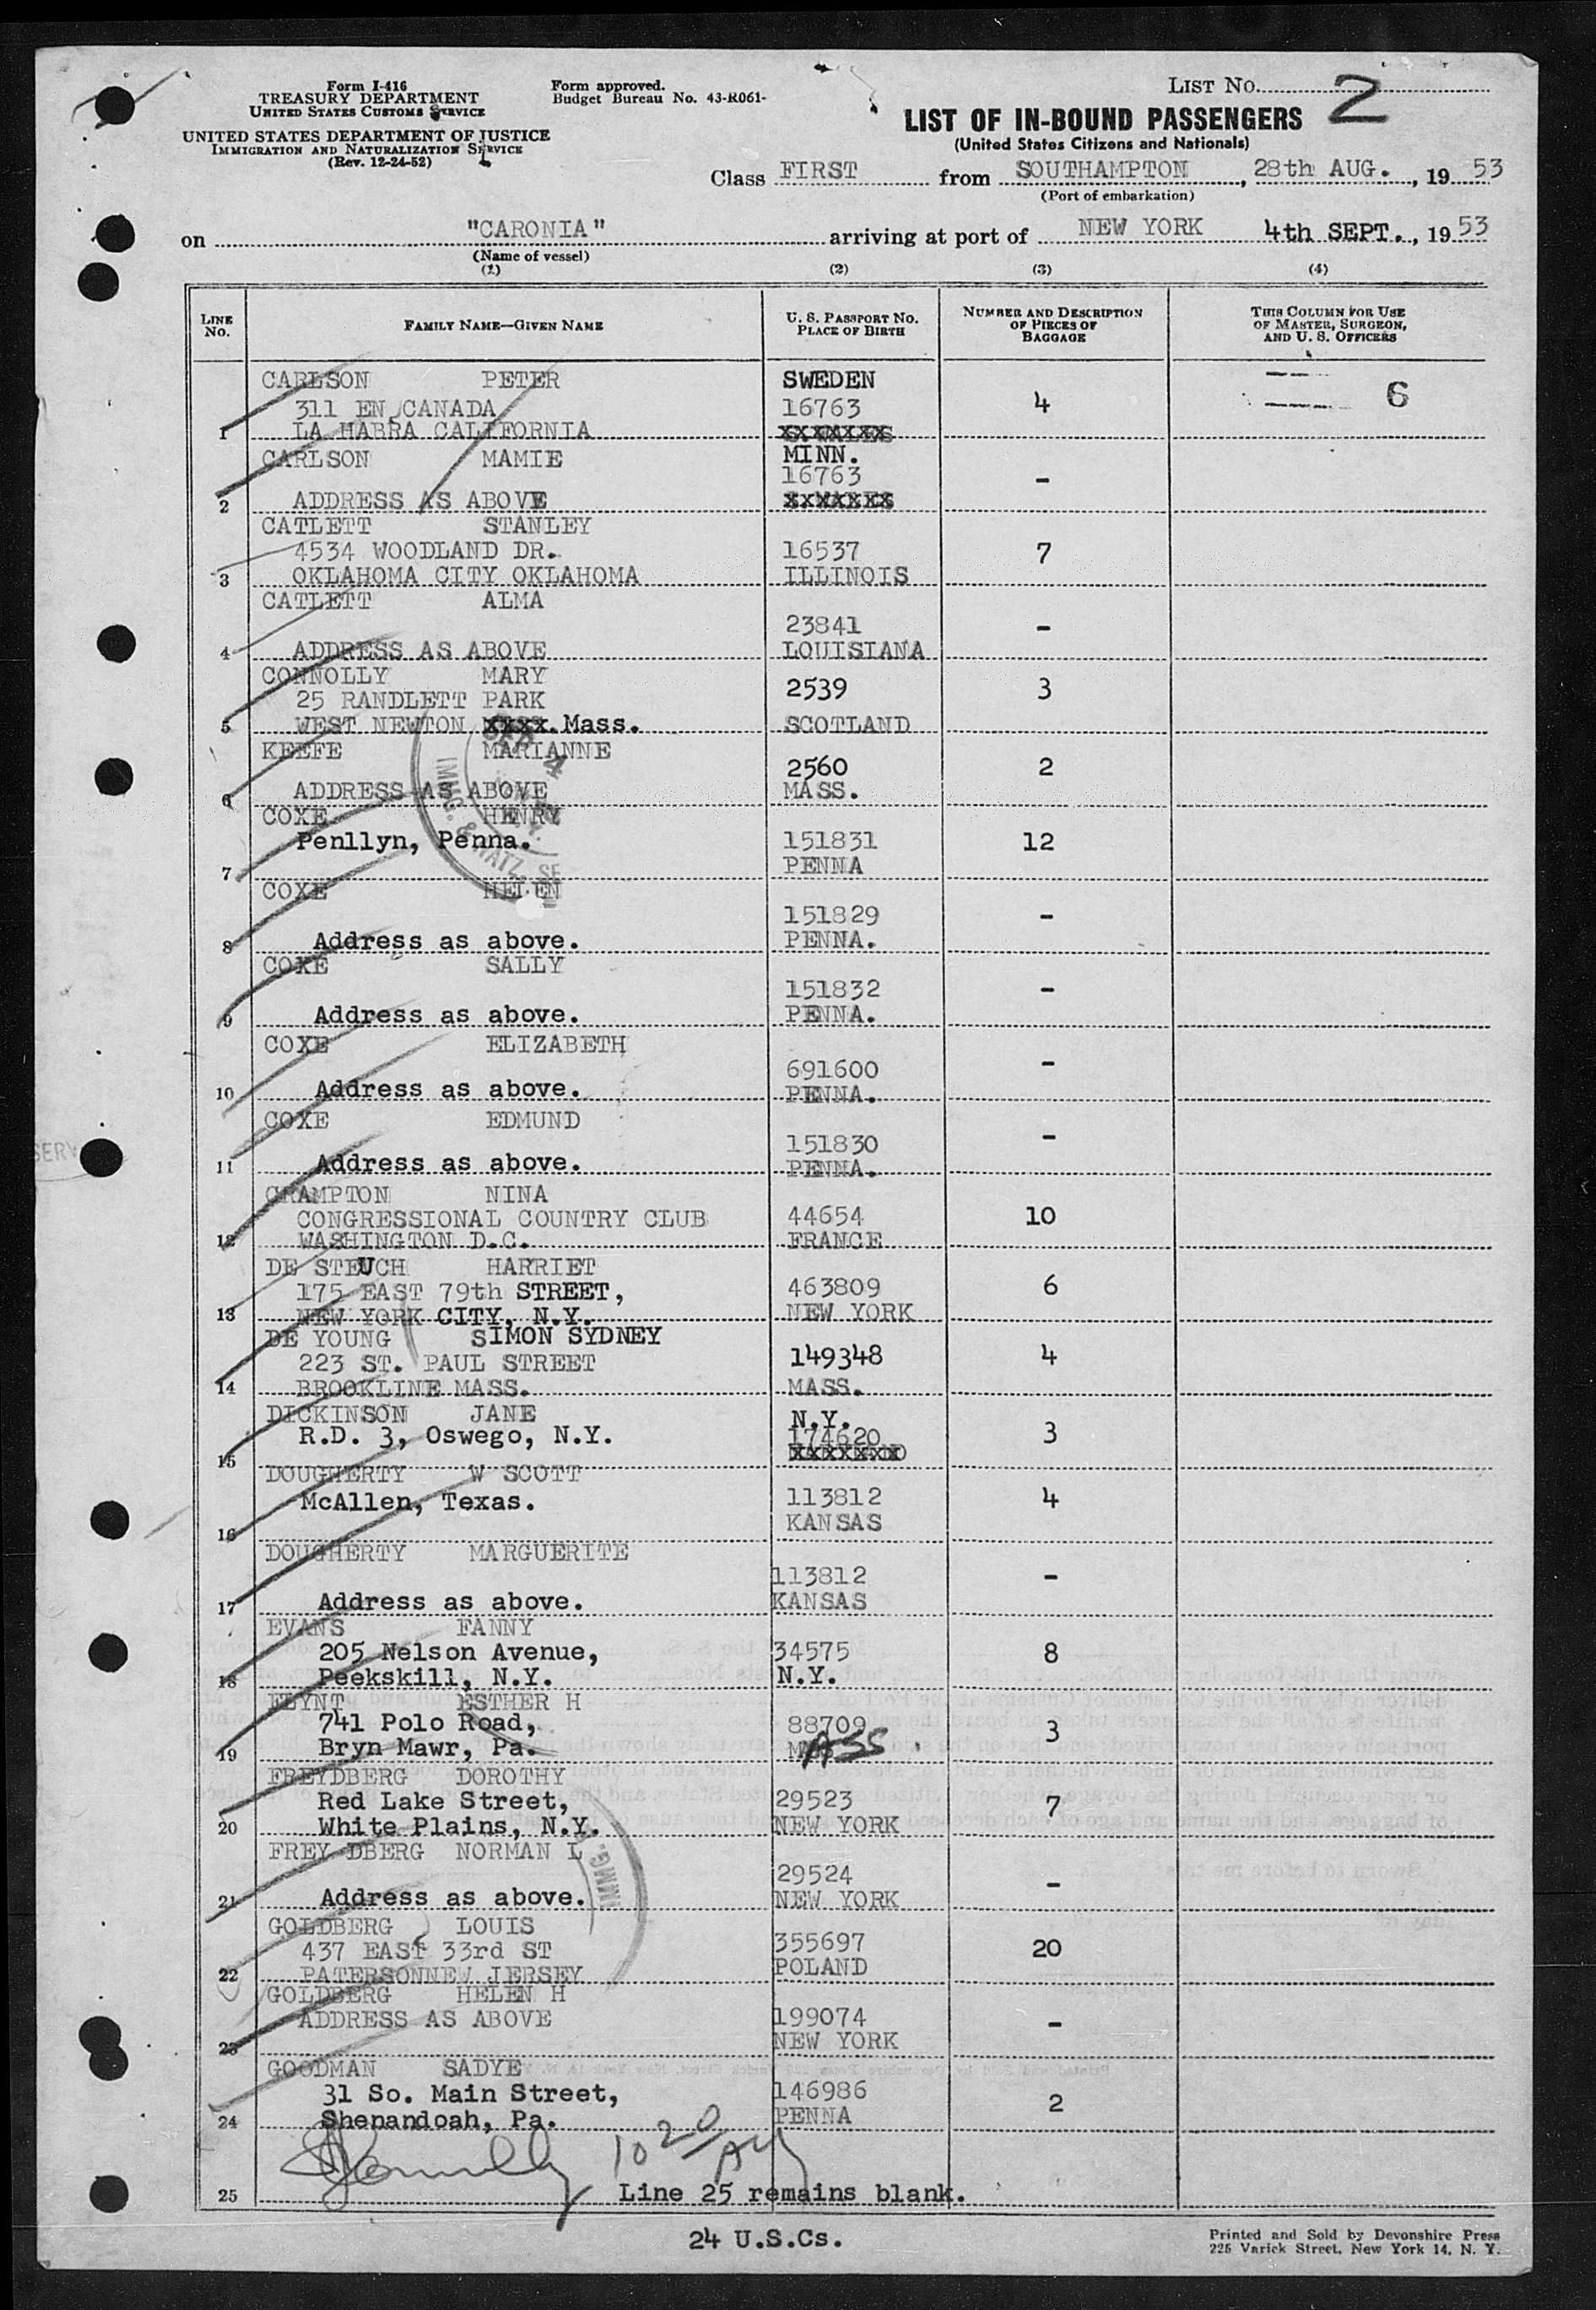 Form I-416
TREASURY DEPARTMENT
UNITED STATES CUSTOMS SERVICE
UNITED STATES DEPARTMENT OF JUSTICE
IMMIGRATION AND NATURALIZATION SERVICE
(Rev. 12-24-52)
Form approved.
Budget Bureau No. 43-R061-
LIST NO. 2
LIST OF IN-BOUND PASSENGERS
(United States Citizens and Nationals)
Class FIRST from SOUTHAMPTON, 28th AUG., 19 53
(Port of embarkation)
on "CARONIA" arriving at port of NEW YORK 4th SEPT., 19 53
(Name of vessel)
(1) (2) (3) (4)
LINE NO. FAMILY NAME—GIVEN NAME U. S. PASSPORT NO. PLACE OF BIRTH NUMBER AND DESCRIPTION OF PIECES OF BAGGAGE THIS COLUMN FOR USE OF MASTER, SURGEON, AND U. S. OFFICERS
CARLSON PETER SWEDEN
311 EN CANADA 16763 4 6
1 LA HABRA CALIFORNIA
CARLSON MAMIE MINN.
16763 -
2 ADDRESS AS ABOVE
CATLETT STANLEY
4534 WOODLAND DR. 16537 7
3 OKLAHOMA CITY OKLAHOMA ILLINOIS
CATLETT ALMA
23841 -
4 ADDRESS AS ABOVE LOUISIANA
CONNOLLY MARY
25 RANDLETT PARK 2539 3
5 WEST NEWTON xxxx Mass. SCOTLAND
KEEFE MARIANNE
2560 2
6 ADDRESS AS ABOVE MASS.
COXE HENRY
Penllyn, Penna. 151831 12
7 PENNA
COXE HELEN
151829 -
8 Address as above. PENNA.
COXE SALLY
151832 -
9 Address as above. PENNA.
COXE ELIZABETH
691600 -
10 Address as above. PENNA.
COXE EDMUND
151830 -
11 Address as above. PENNA.
CRAMPTON NINA
CONGRESSIONAL COUNTRY CLUB 44654 10
12 WASHINGTON D.C. FRANCE
DE STEUCH HARRIET
175 EAST 79th STREET, 463809 6
13 NEW YORK CITY, N.Y. NEW YORK
DE YOUNG SIMON SYDNEY
223 ST. PAUL STREET 149348 4
14 BROOKLINE MASS. MASS.
DICKINSON JANE N.Y.
R.D. 3, Oswego, N.Y. 174620 3
15
DOUGHERTY W SCOTT
McAllen, Texas. 113812 4
16 KANSAS
DOUGHERTY MARGUERITE
113812 -
17 Address as above. KANSAS
EVANS FANNY
205 Nelson Avenue, 34575 8
18 Peekskill, N.Y. N.Y.
FLYNT ESTHER H
741 Polo Road, 88709 3
19 Bryn Mawr, Pa. MASS
FREYDBERG DOROTHY
Red Lake Street, 29523 7
20 White Plains, N.Y. NEW YORK
FREY DBERG NORMAN L
29524 -
21 Address as above. NEW YORK
GOLDBERG LOUIS
437 EAST 33rd ST 355697 20
22 PATERSONNEW JERSEY POLAND
GOLDBERG HELEN H
ADDRESS AS ABOVE 199074 -
23 NEW YORK
GOODMAN SADYE
31 So. Main Street, 146986 2
24 Shenandoah, Pa. PENNA
10 20 AM
25 Line 25 remains blank.
24 U.S.Cs.
Printed and Sold by Devonshire Press
225 Varick Street, New York 14, N. Y.